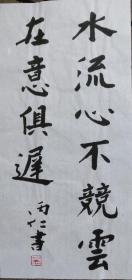 水流心不競雲
在意俱遲
丙仁書